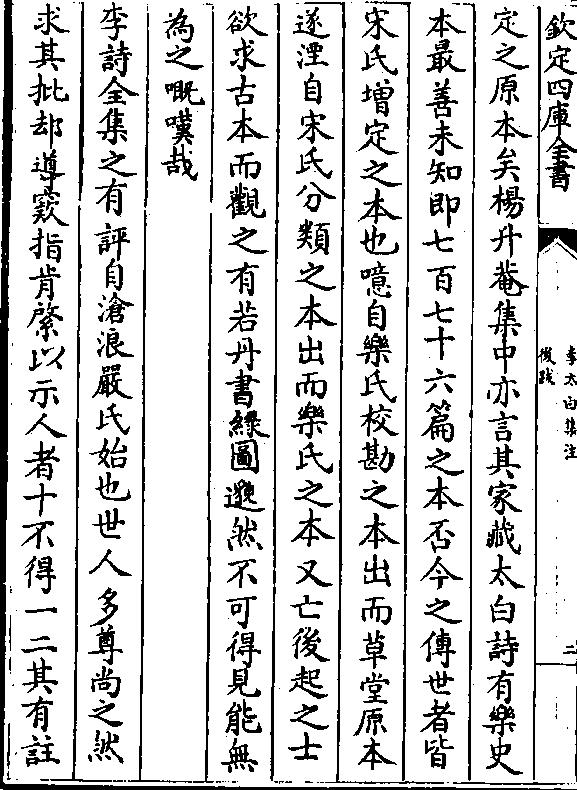 欽定四庫全書
李太白集注
後跋
二
定之原本矣楊升菴集中亦言其家藏太白詩有樂史
本最善未知即七百七十六篇之本否今之傳世者皆
宋氏增定之本也噫自樂氏校勘之本出而草堂原本
遂湮自宋氏分類之本出而樂氏之本又亡後起之士
欲求古本而觀之有若丹書綠圖邈然不可得見能無
為之嘅嘆哉
李詩全集之有評自滄浪嚴氏始也世人多尊尚之然
求其批郤導窽指肯綮以示人者十不得一二其有註